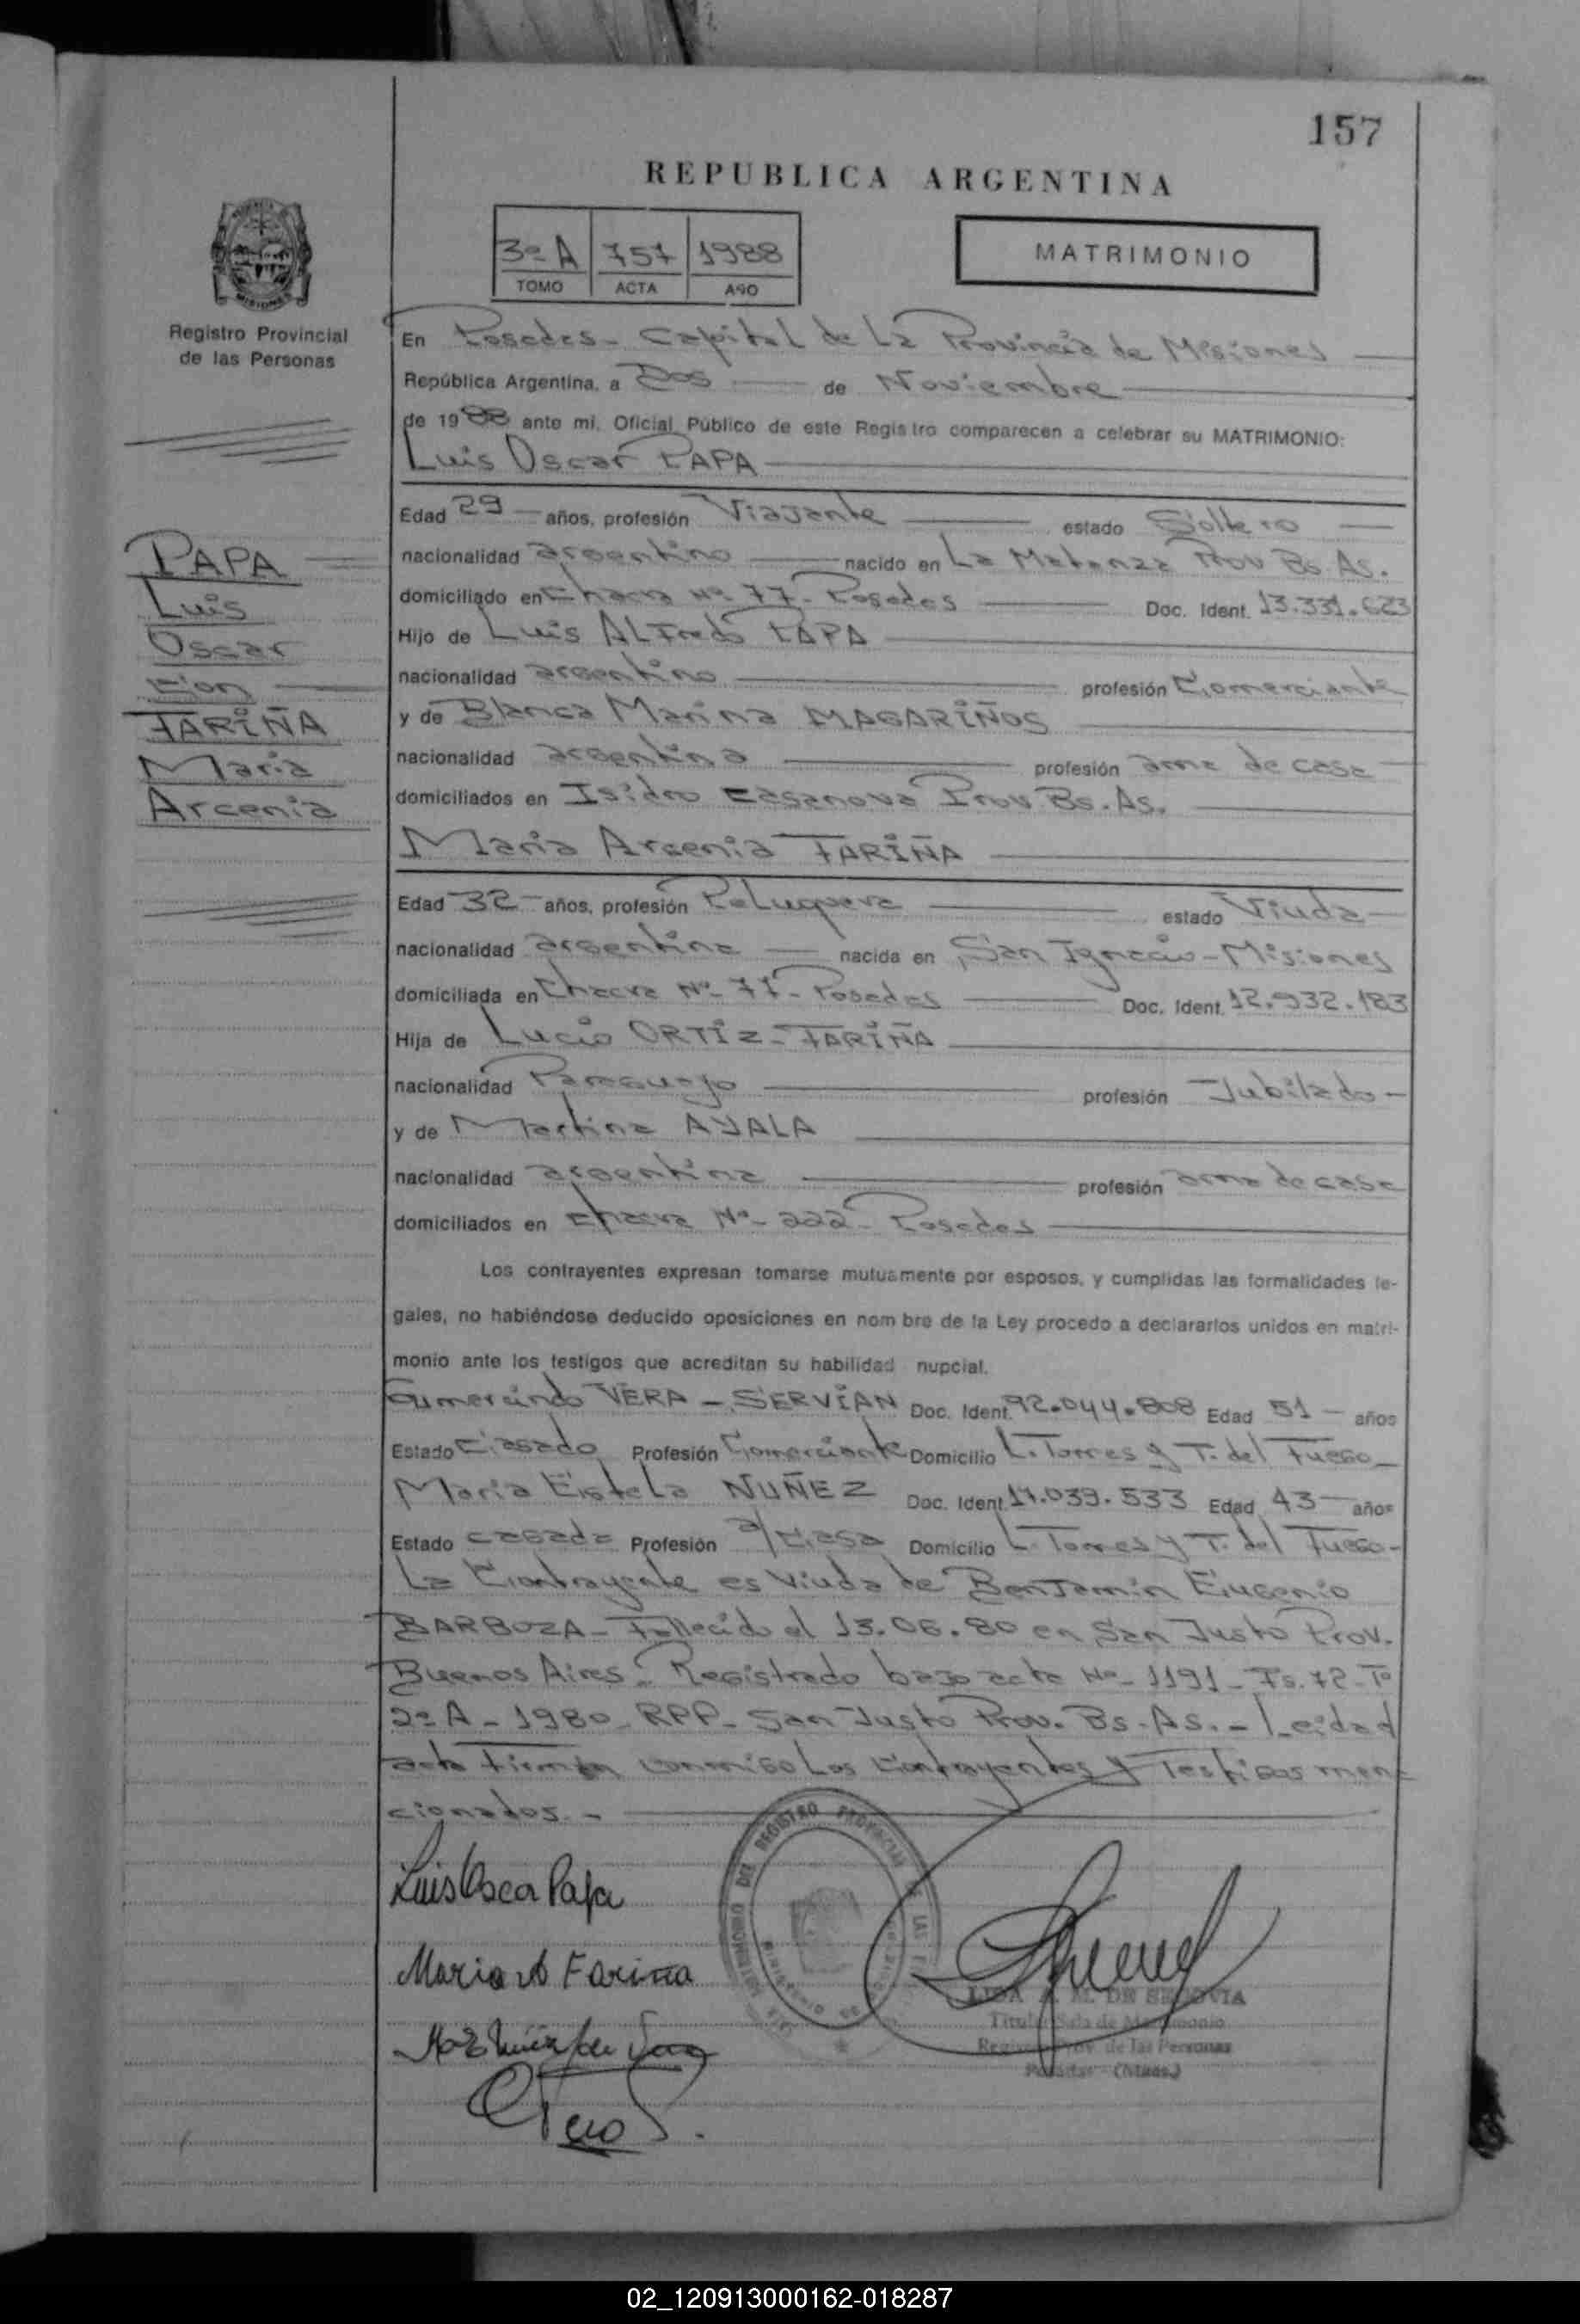 157
REPUBLICA ARGENTINA
3º A 757 1988
TOMO ACTA AÑO
MATRIMONIO
Registro Provincial
de las Personas
En Posadas - Capital de La Provincia de Misiones
República Argentina, a Dos de Noviembre
de 1988 ante mí, Oficial Público de este Registro comparecen a celebrar su MATRIMONIO:
Luis Oscar PAPA
Edad 29 años, profesión Viajante estado Soltero
nacionalidad argentino nacido en La Matanza Prov Bs. As.
domiciliado en Chacra Nº 77 - Posadas Doc. Ident. 13.331.623
Hijo de Luis ALFredo PAPA
nacionalidad argentino profesión Comerciante
y de Blanca Marina MAGARIÑOS
nacionalidad argentina profesión ama de casa
domiciliados en Isidro Casanova Prov. Bs. As.
Maria Arcenia FARIÑA
PAPA
Luis
Oscar
con
FARIÑA
Maria
Arcenia
Edad 32 años, profesión Peluquera estado Viuda
nacionalidad argentina nacida en San Ignacio - Misiones
domiciliada en Chacra Nº 77 - Posadas Doc. Ident. 12.932.183
Hija de Lucio ORTIZ - FARIÑA
nacionalidad Paraguayo profesión Jubilado -
y de Martina AYALA
nacionalidad argentina profesión ama de casa
domiciliados en Chacra Nº - 222 - Posadas
Los contrayentes expresan tomarse mutuamente por esposos, y cumplidas las formalidades le-
gales, no habiéndose deducido oposiciones en nom bre de la Ley procedo a declararlos unidos en matri-
monio ante los testigos que acreditan su habilidad nupcial.
Gumercindo VERA - SERVIAN Doc. Ident. 92.044.808 Edad 51 - años
Estado Casado Profesión Comerciante Domicilio L. Torres y T. del Fuego -
Maria Estela NUÑEZ Doc. Ident. 17.039.533 Edad 43 años
Estado casada Profesión a/casa Domicilio L. Torres y T. del Fuego -
La Contrayente es Viuda de Benjamin Eugenio
BARBOZA - Fallecido el 13.06.80 en San Justo Prov.
Buenos Aires. Registrado bajo acta Nº - 1191 - Fs. 72 - Tº
2º A - 1980 - RPP - San Justo Prov. Bs. As. - Leida el
acta Firman conmigo Los Contrayentes y Testigos men
cionados. -
Luis Oscar Papa
Maria A Fariña
DEL REGISTRO PROVINCIAL DE LAS
DE SEGOVIA
Titular Sala de Matrimonio
Registro Prov. de las Personas
Posadas - (Mnes.)
02_120913000162-018287